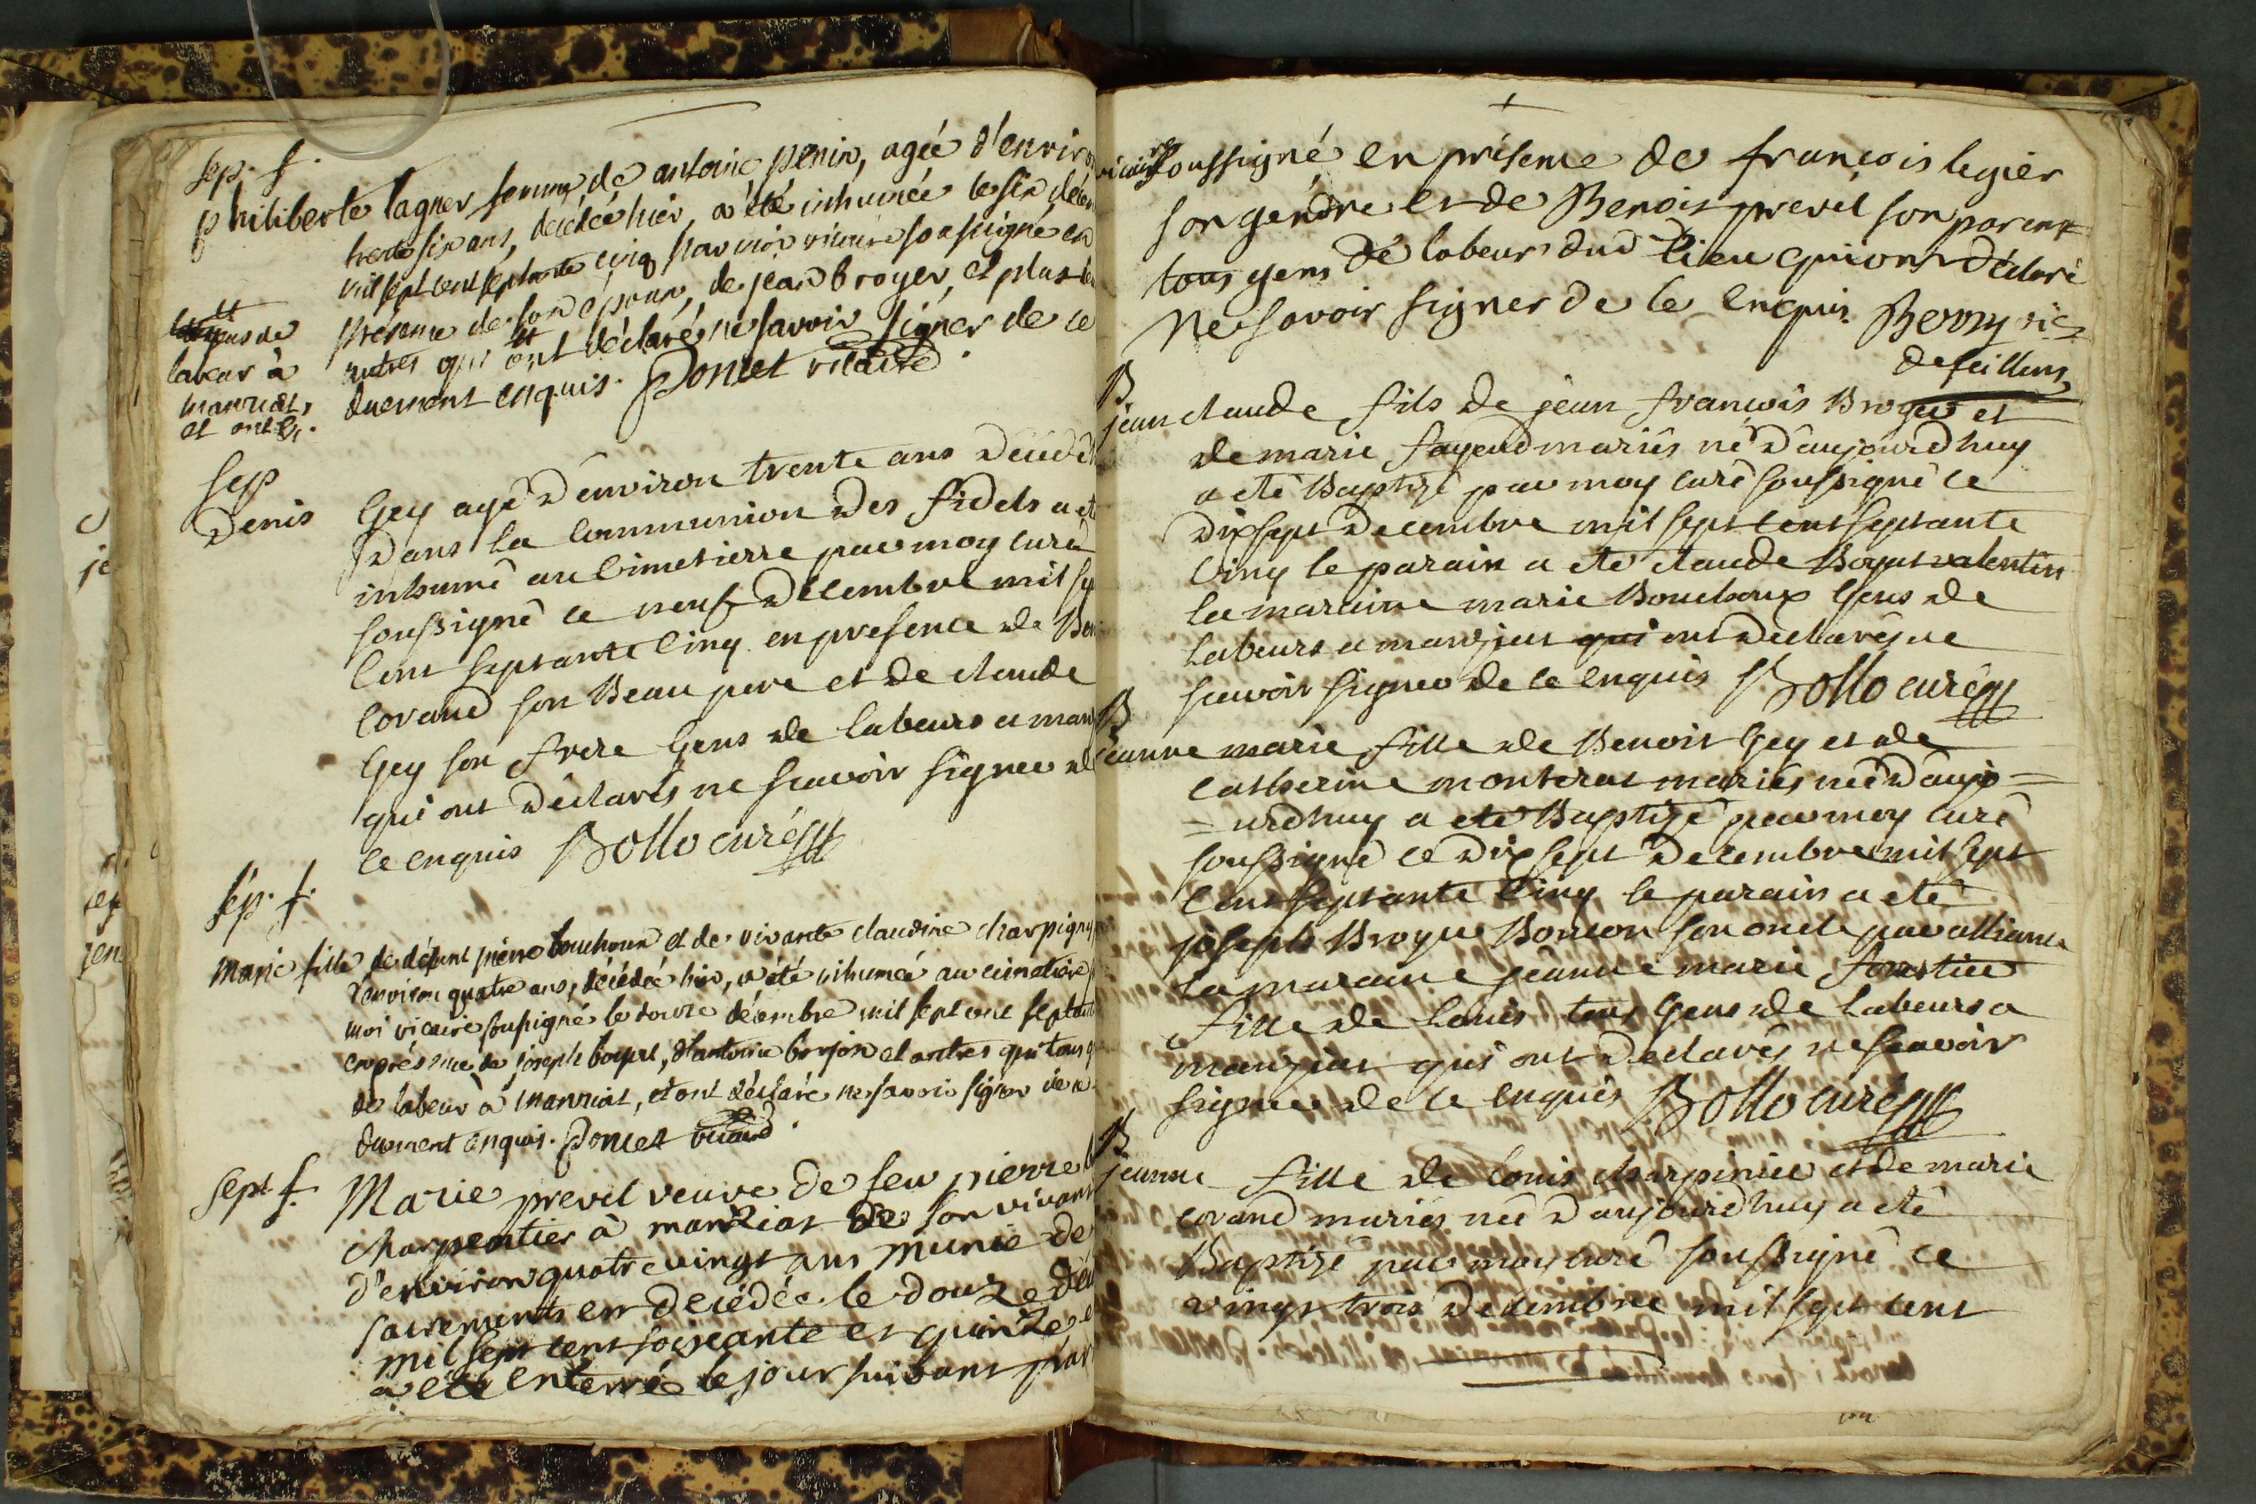 sep. f.
philiberte lagner femme de antoine penin, agée d'environ
trente six ans, décédée hier, a été inhumée le six décem
mil sept cent septante cinq par moi vicaire soussigné en
présence de son époux, de jean broyer, et plus
autres qui ont déclaré ne savoir signer de ce
duement enquis. Poncet vicaire
gens de
labeur à
manziat,
et ont &c.
sep
Denis Gey agé d'environ trente ans décédé
Dans la communion des fidels a eté
inhumé au Cimetierre par moy curé
soussigné ce neuf decembre mil sep
Cent septante Cinq en presence de Ben
Corand son Beau pere et de claude
Gey son frere Gens de labeurs a man
qui ont déclarés ne scavoir signer de
ce enquis Bollo curé
sép. f.
Marie fille de défunt pierre bouchoux et de vivante claudine charpigny
d'environ quatre ans, décédée hier, a été inhumée au cimetière
moi vicaire soussigné le douze décembre mil sept cent septante
en présence de joseph boyat, d'antoine brojon et autres qui tous
de labeur à manziat, et ont déclaré ne savoir signer de ce
duement enquis. Poncet vicaire.
sept. f. Marie prevel veuve de feu pierre
charpentier à manziat de son vivant
d'environ quatre vingt ans munie de
sacrements est decédée le douze déc
mil sept cent soixante et quinze
a été enterré le jour suivant par
vicaire soussigné en présence de françois legier
son gendre et de Benoit prevel son parent
tous gens de labeur dud lieu qui ont déclaré
ne savoir signer de ce enquis Berry vic
de feillens
B
jean claude fils de jean francois Broyer et
de marie fayend mariés né d'aujourdhuy
a eté Baptizé par moy curé soussigné ce
dix sept decembre mil sept cent septante
Cinq le parain a eté claude Boyat valentin
la maraine marie Bouchoux Gens de
labeurs a manziat qui ont declarés ne
scavoir signer de ce enquis Bollo curé
B
jeanne marie fille de Benoit Gey et de
Catherine monterat mariés née d'aujo=
=urdhuy a eté Baptizé par moy curé
soussigné ce dix sept decembre mil sept
Cent septante Cinq le parain a eté
joseph Broyer Bonson son oncle par alliance
la maraine jeanne marie forestier
fille de Louis tous Gens de labeurs a
manziat qui ont declarés ne scavoir
signer de ce enquis Bollo curé
B
jeanne fille de Louis charpinier et de marie
corand mariés née d'aujourdhuy a eté
Baptizé par moy curé soussigné ce
vingt trois decembre mil sept cent